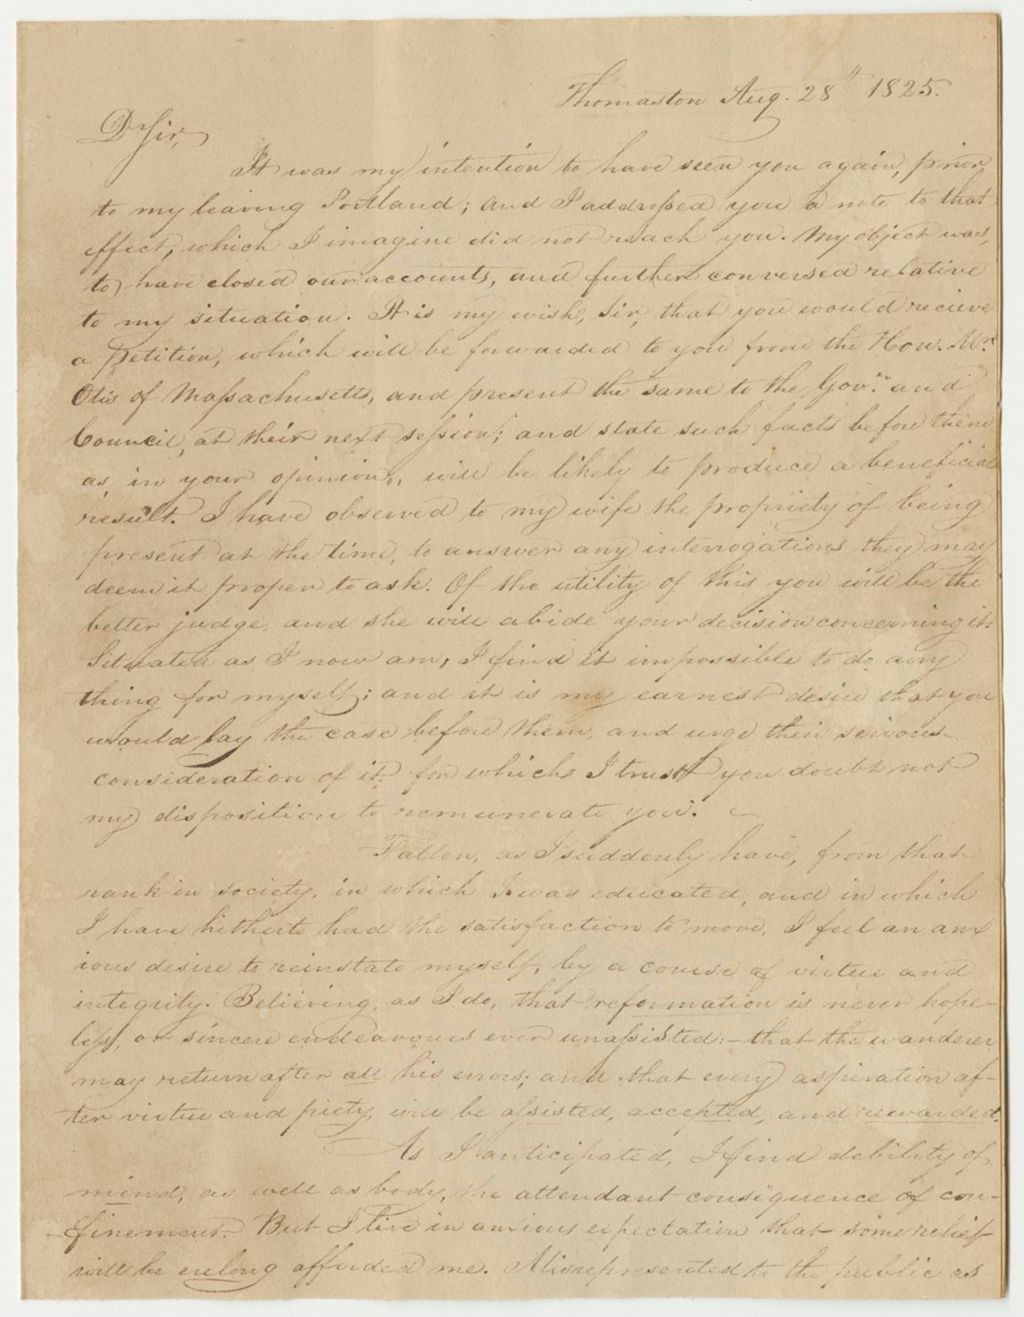 Thomaston Aug. 28th 1825.
Dr Sir,
It was my intention to have seen you again, prior
to my leaving Portland; and I addressed you a note to that
effect, which I imagine did not reach you. My object was,
to have closed our accounts, and further conversed relative
to my situation. It is my wish, Sir, that you would recieve
a Petition, which will be forwarded to you from the Hon. Mr.
Otis of Massachusetts, and present the same to the Govr. and
Council, at their next session; and state such facts before them
as, in your opinion, will be likely to produce a beneficial
result. I have observed to my wife the propriety of being
present at the time, to answer any interrogations they may
deem it proper to ask. Of the utility of this you will be the
better judge, and she will abide your decision concerning it.
Situated as I now am, I find it impossible to do any
thing for myself; and it is my earnest desire that you
would lay the case before them, and urge their serious
consideration of it; for which I trust you doubt not
my disposition to remunerate you.
Fallen, as I suddenly have, from that
rank in society, in which I was educated, and in which
I have hitherto had the satisfaction to move, I feel an anx
ious desire to reinstate myself, by a course of virtue and
integrity. Believing, as I do, that reformation is never hope-
less, or sincere endeavours ever unassisted:- that the wanderer
may return after all his errors; and that every aspiration af-
ter virtue and piety, will be assisted, accepted, and rewarded.
As I anticipated, I find debility of
mind, as well as body, the attendant consequence of con-
finement. But I live in anxious expectation that some relief
will be erelong afforded me. Misrepresented to the public as